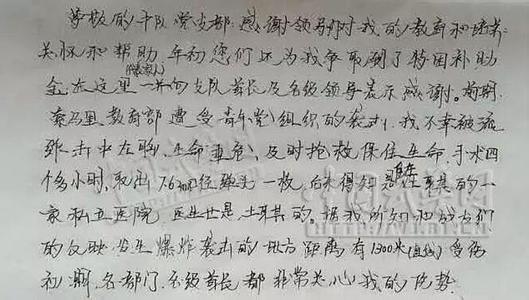 尊敬的斗队党支部: 感谢领导对我的教育和培养
关怀和帮助 年初您们还为我争取到了特困补助
金(给家人)在这里一并向支队首长及各级领导表示感谢。前期
索马里教育部遭受青年党组织的袭击,我不幸被流
弹击中左胸,生命垂危,及时抢救,保住生命,手术四
个多小时,取出7.62口径弹头一枚,后来得知是在土耳其的一
家私立医院 医生也是土耳其的。据我所知和战友们
的反映 发生爆炸袭击的地方距离有1300米(直线)受伤
初期,各部门、各级首长都非常关心我的伤势